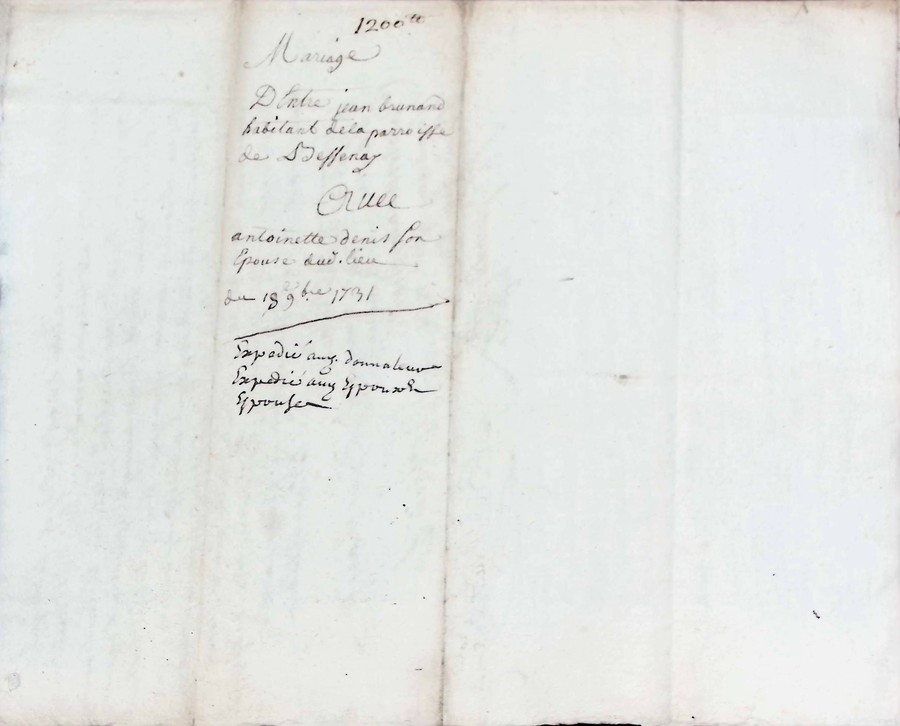 1200tt
Mariage
D'Entre jean brunand
habitant dela parroisse
de
Avec
antoinette denis son
Epouse dud. lieu
du 18 9bre 1731
Expedié aux donnateurs
Expedié aux Epoux Et
Epouse